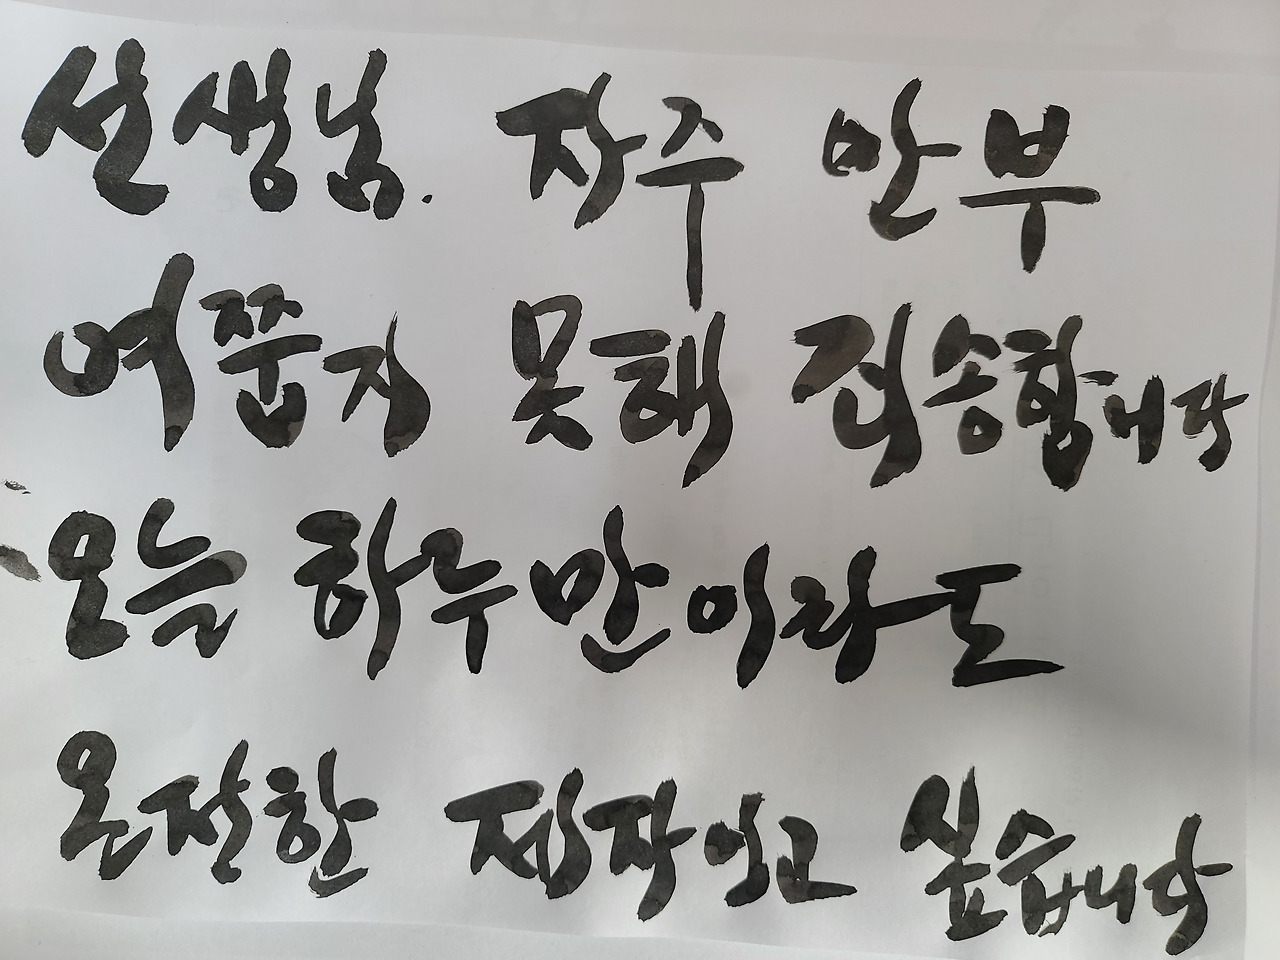 선생님. 자주 안부
여쭙지 못해 죄송합니다
오늘 하루만이라도
온전한 제자이고 싶습니다